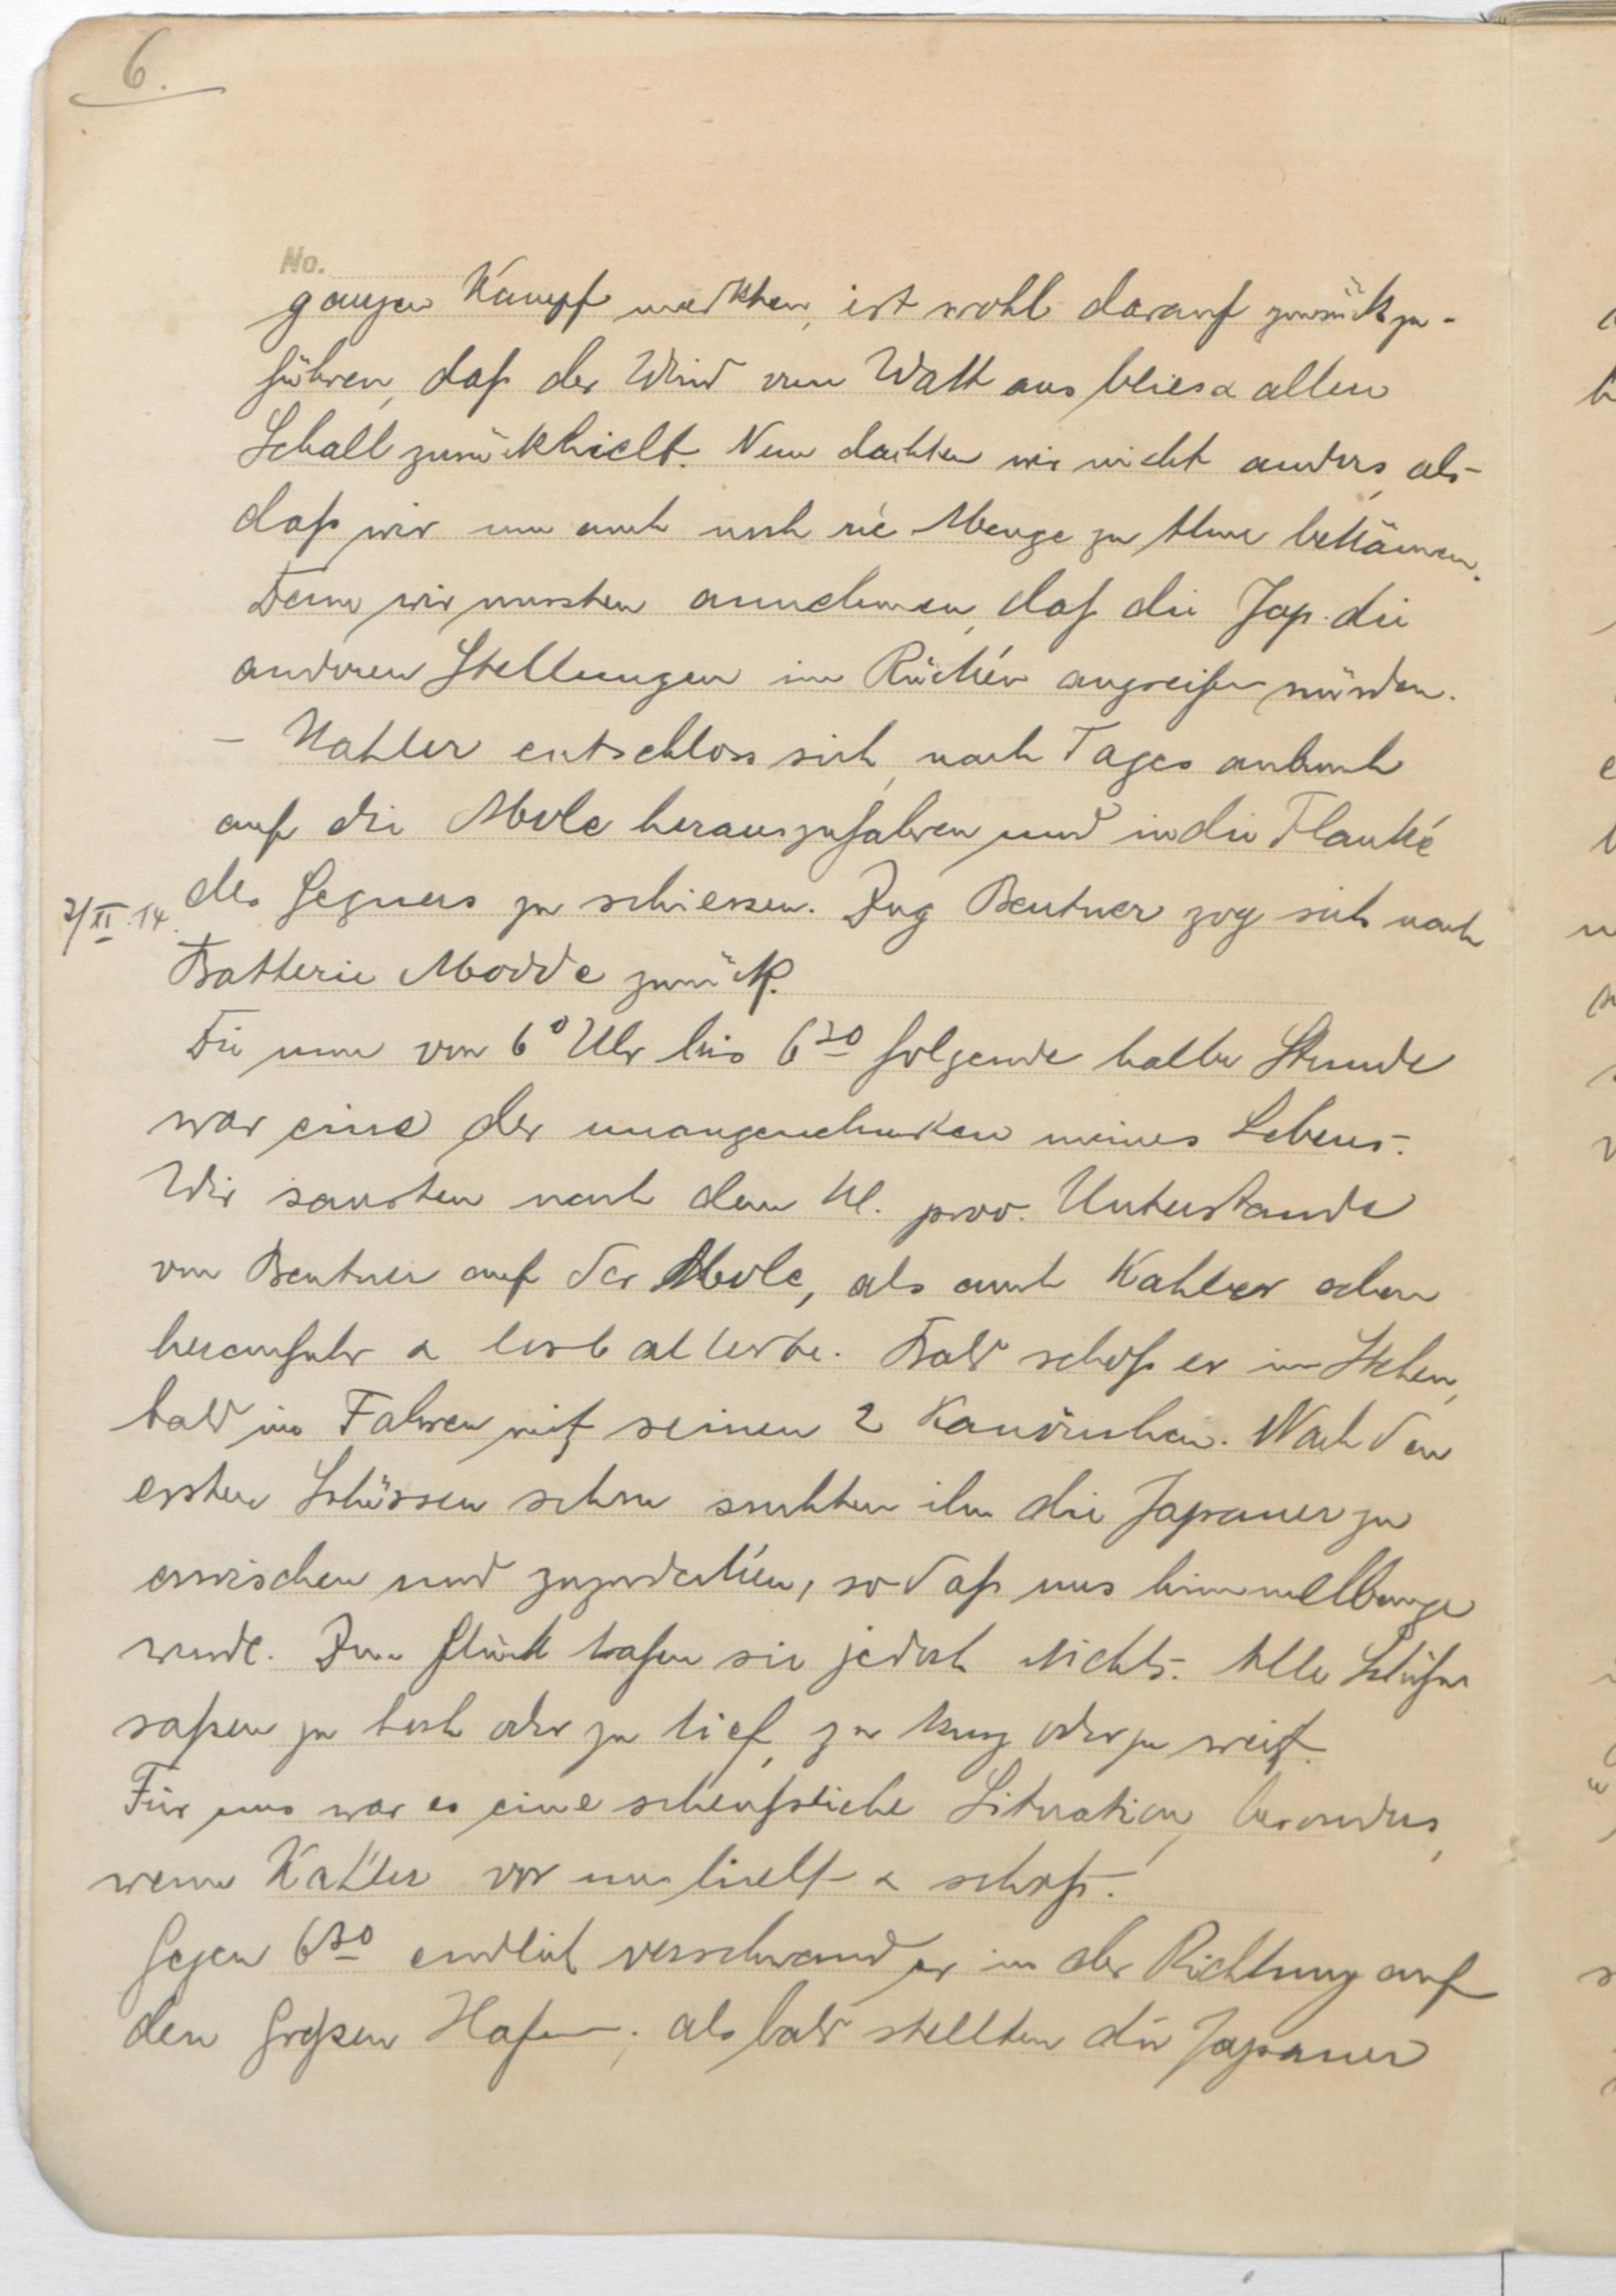 6.
No.
ganzen Kampf merkten, ist wohl darauf zurückzu-
führen, daß der Wind vom Watt aus blies & allen
Schall zurückhielt. Nun dachten wir nicht anders, als
daß wir nun auch noch die Menge zu thun bekämen.
Denn wir mussten annehmen, daß die Jap. die
anderen Stellungen im Rücken angreifen würden.
– Kahler entschloss sich, nach Tagesanbruch
auf die Mole herauszufahren und in die Flanke
des Gegners zu schiessen. Zug Beutner zog sich nach
2/XI.14.
Batterie Modde zurück.
Die nun von 6⁰ Uhr bis 6³⁰ folgende halbe Stunde
war eine der unangenehmsten meines Lebens.
Wir sausten nach dem kl. prov. Unterstande
von Beutner auf der Mole, als auch Kahler schon
herausfuhr & losballerte. Bald schoß er im Stehen,
bald im Fahren mit seinen 2 Kanönchen. Nach den
ersten Schüssen schon suchten ihn die Japaner zu
erwischen und zuzudecken, so daß uns himmelbange
wurde. Zum Glück trafen sie jedoch nichts. Alle Schüsse
saßen zu hoch oder zu tief, zu kurz oder zu weit.
Für uns war es eine scheußliche Situation, besonders,
wenn Kahler vor uns hielt & schoß.
Gegen 6³⁰ endlich verschwand er in der Richtung auf
den großen Hafen; alsbald stellten die Japaner